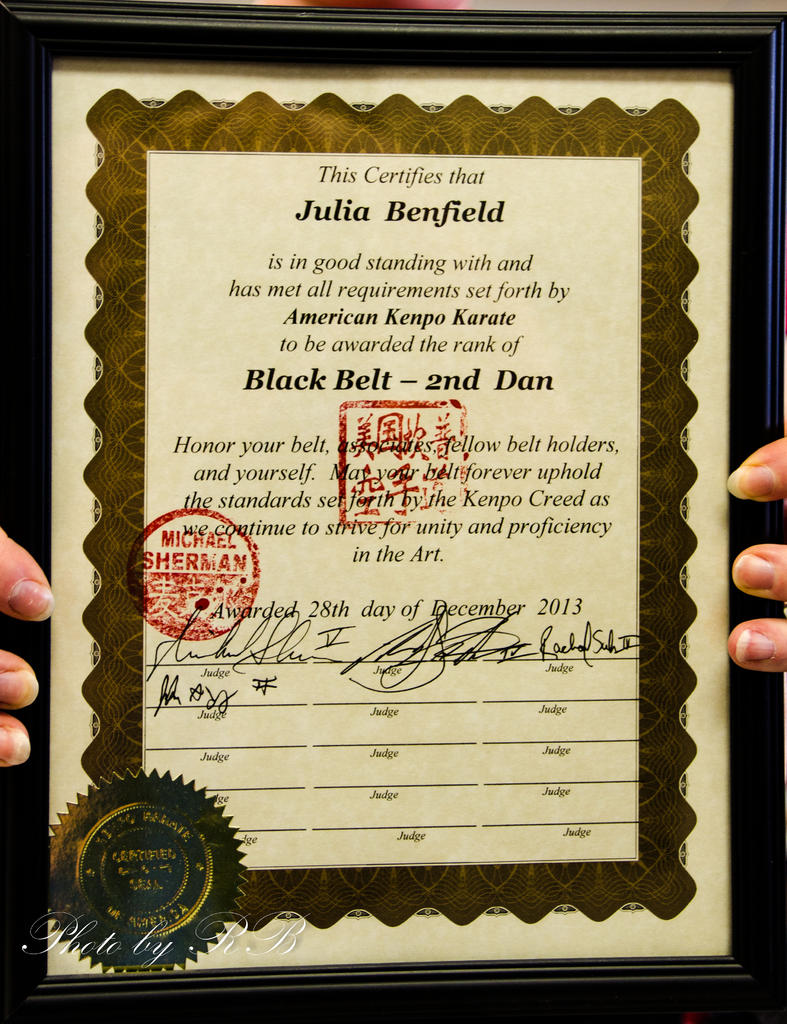 This Certifies that
Julia Benfield
is in good standing with and
has met all requirements set forth by
American Kenpo Karate
to be awarded the rank of
Black Belt – 2nd Dan
Honor your belt, associates, fellow belt holders,
and yourself. May your belt forever uphold
the standards set forth by the Kenpo Creed as
we continue to strive for unity and proficiency
in the Art.
美国
MICHAEL
SHERMAN
Awarded 28th day of December 2013
Judge Judge Judge
Judge Judge Judge
Judge Judge Judge
Judge Judge
Judge Judge
KENPO KARATE
CERTIFIED
SEAL
OF AMERICA
Photo by RB